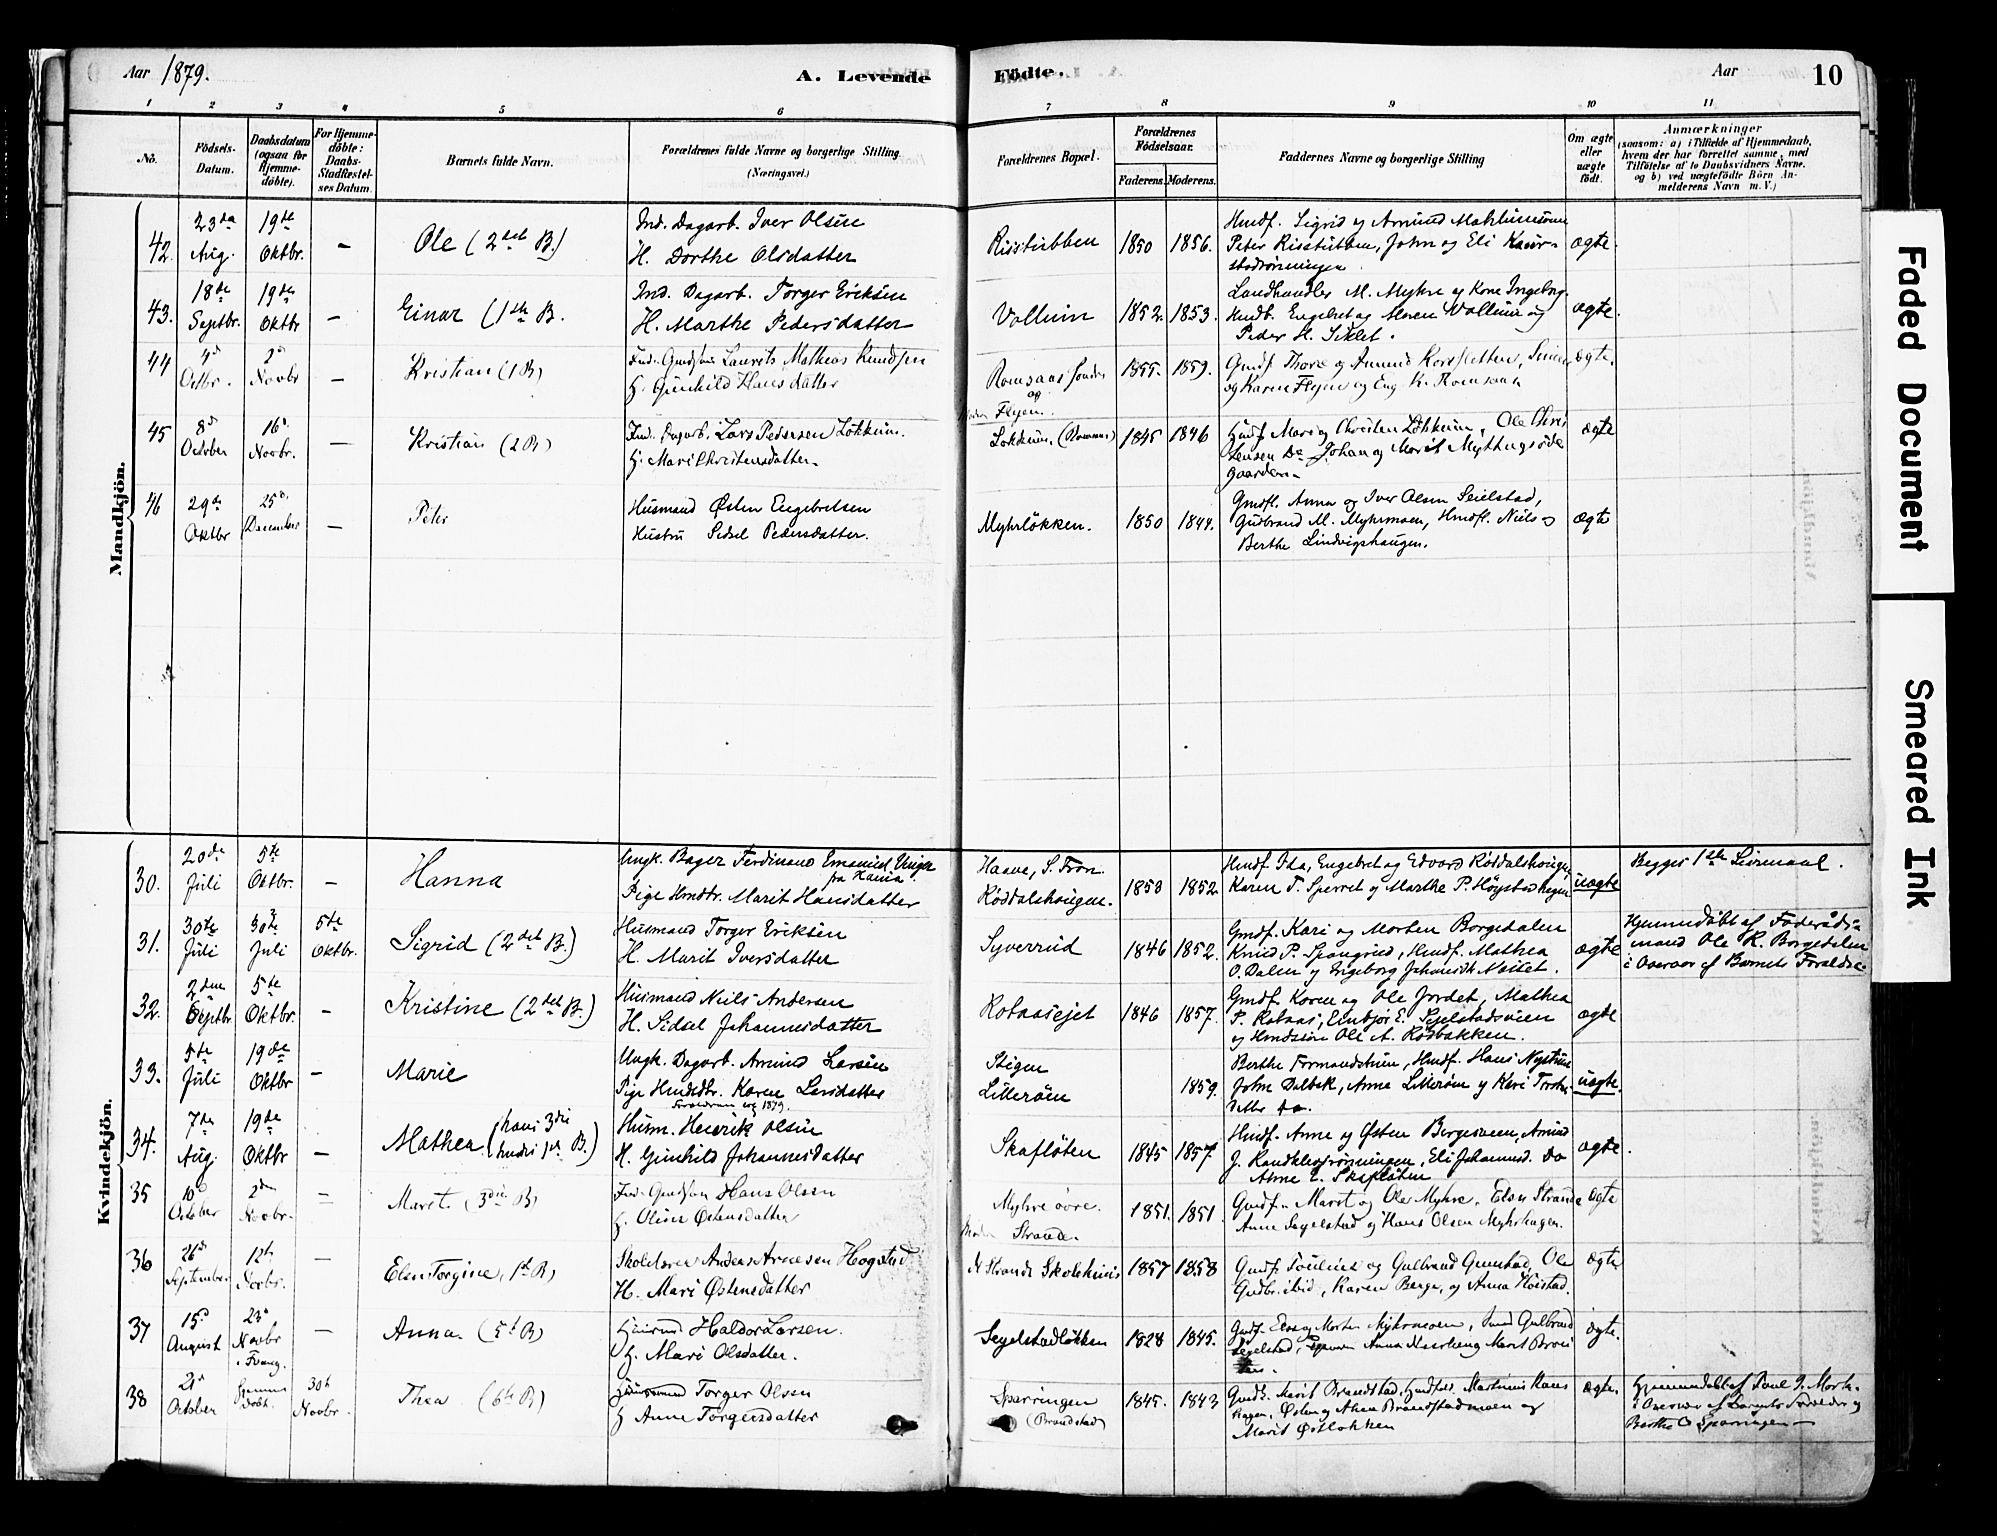 Aar 1879.
A. Levende
Födte.
Aar
10
1 2 3 4 5 6 7 8 9 10 11
No.
Födsels-Datum.
Daabsdatum (ogsaa for Hjemmedöbte).
For Hjemmedöbte: Daabs-Stadfæstelses Datum.
Barnets fulde Navn.
Forældrenes fulde Navne og borgerlige Stilling.
(Næringsvei.)
Forældrenes Bopæl.
Forældrenes Födselsaar.
Faderens. Moderens.
Faddernes Navne og borgerlige Stilling
Om ægte eller uægte födt.
Anmærkninger
(saasom: a) i Tilfælde af Hjemmedaab, hvem der har forrettet samme, med Tilföielse af to Daabsvidners Navne. og b) ved uægtefödte Börn Anmelderens Navn m. V.)
Mandkjön.
42. 23da Aug. 19de Oktbr. – Ole (2det B.)
Ind. Dagarb. Iver Olsen
H. Dorthe Olsdatter
Risstubben 1850 1856.
Hmdf. Sigrid og Amund
Peter Risstubben, John og Eli
ægte.
43. 18de Septbr. 19de Oktbr – Einar (1ste B.
Ind. Dagarb. Torger Eriksen
H. Marthe Pedersdatter
Vollum 1852. 1853.
Landhandler M. Myhre og Kone Ingeborg.
Engebret og Maren Vollum og
Peder H. Siklet.
ægte.
44 4d Octbr. 2d Novbr – Kristian (1 B)
Ind. Gmdsøn Laurits Mathias Knudsen
H. Gunhild Hansdatter
Romsaas søndre og
Moder Flyen.
1855. 1859.
Gmdf. Thore og Amund
og Karen Flyen og Eng. K. Romsaas.
ægte.
45 8d October 16d Novbr. – Kristian (2 B)
Ind. Dagarb. Lars Pedersen Løkkum.
H. Mari Christensdatter.
Løkkum. (Romsaas) 1845 1846
Hmdf. Mari og Christen Løkkum, Ole Christensen Do Johan og Marit
ægte
46 29de Oktbr 25d December – Peter
Husmand Østen Engebretsen
Hustru Sidsel Pedersdatter.
Myhrløkken. 1850 1849.
Gmdfl. Anna og Iver Olsen Seielstad,
Gudbrand M. Myhrmoen, Hmdfl. Niels og
Berthe Lindvigshaugen.
ægte
Kvindekjön.
30. 20de Juli 5te Oktbr. – Hanna
Ungk. Bager Ferdinand Emanuel Unger
Pige Hmdtr. Marit Hansdatter
Haave, S. Fron.
Røddalshaugen.
1850 1852
Hmdf. Ida, Engebret og Edvard Røddalshougen,
Karen T. Sperret og Marthe P.
uægte
Begges 1ste Leiermaal.
31. 30te Juli 30te Juli 5te Oktbr. Sigrid (2det B.)
Husmand Torger Eriksen
H. Marit Iversdatter
Syverrud 1846 1852.
Gmdf. Kari og Morten Borgedalen
Knud P. Spangrud, Hmdf. Mathea
O. Dalen og Ingeborg
ægte
Hjemmedöbt af Føderaads-
mand Ole K. Borgedalen
i Overvær af Barnets Forældre.
32. 2den Septbr. 5te Oktbr. – Kristine (2det B.)
Husmand Niels Andersen
H. Sidsel Johannesdatter
Rolaasejet 1846 1857.
Gmdf. Karen og Ole Jordet, Mathea
P. Rolaas, Embjør E. Sejelstadsveen
og Hmdsøn Ole A. Rødbakken.
ægte
33. 5te Juli 19de Oktbr – Marie
Ungk. Dagarb. Amund Larsen
Pige Hmddtr. Karen Larsdatter
Stigen
Lillerøen
1859.
Berthe Formandstuen, Hmdf. Hans Nystuen
John Dalbak, Anne Lillerøen og Kari
uægte.
34. 7de Aug. 19de Oktbr – Mathea (hans 3die hendes 1ste B.)
Husm. Henrik Olsen
H. Gunhild Johannesdatter
Skafløten 1845 1857
Hmdf. Anne og Østen Bergesveen, Amund
J. Eli Johannesd. Do
Anne E. Skafløten
ægte.
35 10d October 2den Novbr. – Marit. (3die B)
Ind. Gmdsøn Hans Olsen
H. Oline Østensdatter
Myhre øvre.
Moder Strande.
1851. 1851.
Gmdf. Marit og Ole Myhre. Elen Strande
Anne Segelstad og Hans Olsen Myhrhagen.
ægte
36 26d September 12te Novbr. – Elen Torgine. 1ste B)
Skolelærer Anders Arnesen Hogstad
H. Mari Østensdatter
Strande Skolehuus 1857 1858
Gmdf. og Gulbrand
Gudbr. ibid, Karen Berge, og Anna
ægte
37 15d August 23d Novbr – Anna. (5te B)
Husmd. Haldor Larsen.
H. Mari Olsdatter.
Segelstadløkken 1828 1845.
Gmdf. og Morten Myhrmoen, Gulbrand
Segelstad,
ægte.
38 21d October Hjemmedøbt. 30te Novbr. Thea (6te B)
Husmand Torger Olsen
H Anne Torgersdatter
Sparringen
(Brandstad)
1845. 1843
Gmdb. Marit Brandstad, Martinus
Østen og Brandstadmoen og
Marit Østløkken
ægte.
Hjemmedøbt af Poul
i Overvær af Barnets Forældre og
Berthe O Sparringen
Faded Document
Smeared Ink